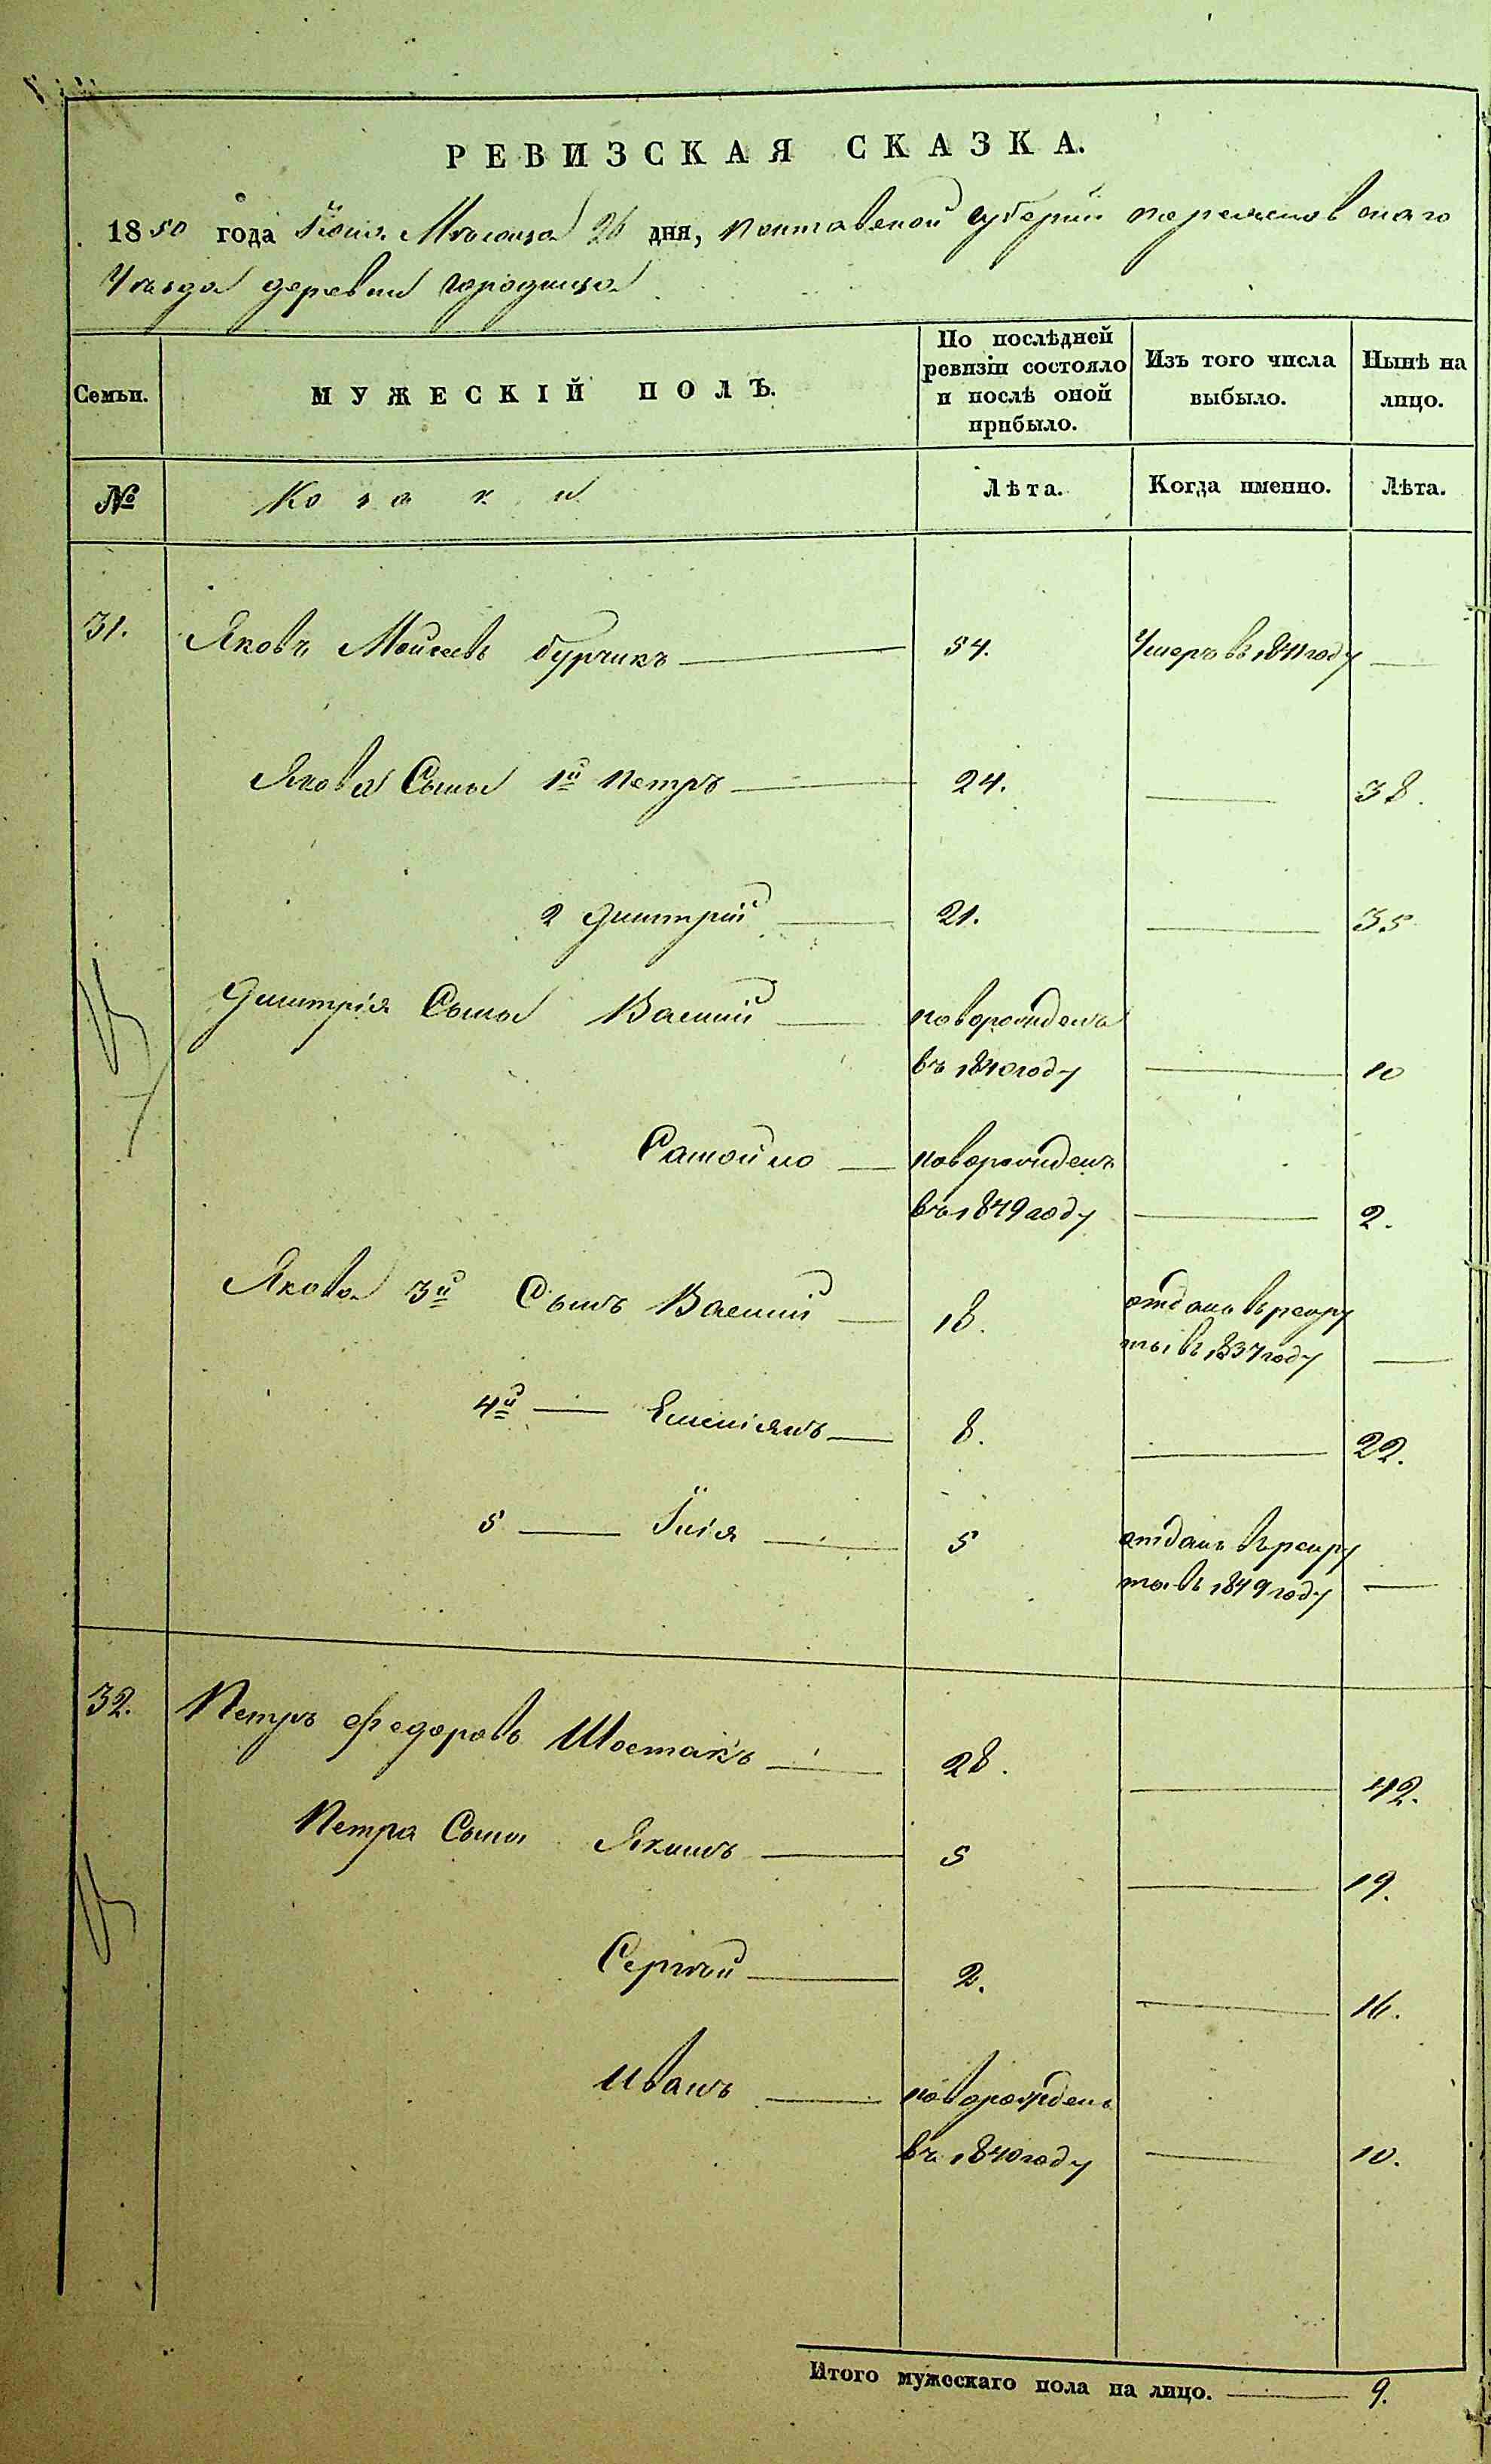 РЕВИЗСКАЯ СКАЗКА.
1850 года Июня Мѣсяца 26 дня, Полтавской губерніи
Уѣзда деревни Городища
Семьи.
МУЖЕСКІЙ ПОЛЪ.
По послѣдней ревизіи состояло и послѣ оной прибыло.
Изъ того числа выбыло.
Нынѣ на лицо.
№ Козаки Лѣта. Когда именно. Лѣта.
31. Яковъ Моисеевъ Бурчикъ — 54. Умеръ въ 1841 году —
Якова Сыны 1й Петръ — 24. — 38.
2 Дмитрій — 21. — 35
Дмитрія Сыны Василій — новорожденъ
въ 1840 году — 10
Самойло — новорожденъ
въ 1849 году — 2.
Якова 3й Сынъ Василій — 18. отданъ въ рекру
ты въ 1837 году —
4й — Емеліянъ — 8. — 22.
5 — Илія — 5 отданъ въ рекру
ты въ 1849 году —
32. Петръ Федоровъ Шостакъ — 28. — 42.
Петра Сыны Якимъ — 5 — 19.
Сергѣй — 2. — 16.
Иванъ — новорожденъ
въ 1840 году — 10.
Итого мужескаго пола на лицо. — 9.